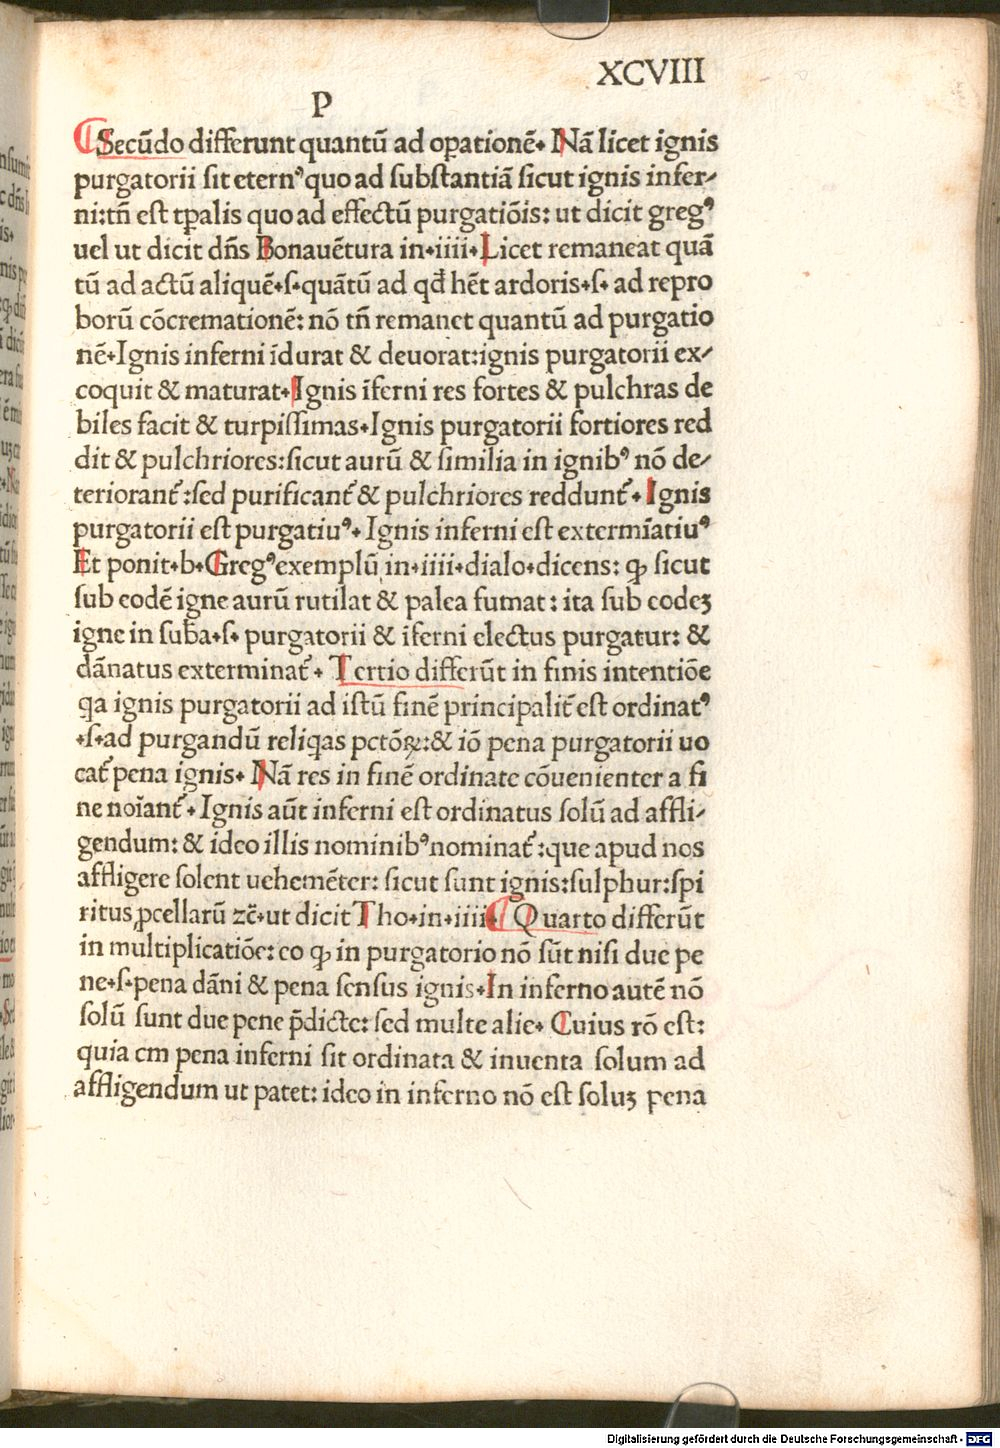 XCVIII
P
Secūdo differunt quantū ad oꝑationē. Nā licet ignis
purgatorii ſit eternꝰ quo ad ſubſtantiā ſicut ignis infer⸗
ni:tn̄ eſt tꝑalis quo ad effectū purgatiōis: ut dicit gregꝰ
uel ut dicit dn̄s Bonauētura in.iiii.Licet remaneat quā
tū ad actū aliquē.ſ.quātū ad qđ hēt ardoris.ſ.ad repro
borū cōcremationē: nō tn̄ remanet quantū ad purgatio
nē.Ignis inferni īdurat & deuorat:ignis purgatorii ex⸗
coquit & maturat.Ignis īferni res fortes & pulchras de
biles facit & turpiſſimas.Ignis purgatorii fortiores red
dit & pulchriores:ſicut aurū & ſimilia in ignibꝰ nō de⸗
teriorant᷑:ſed purificant᷑ & pulchriores reddunt᷑. Ignis
purgatorii eſt purgatiuꝰ. Ignis inferni eſt extermīatiuꝰ
Et ponit.b.Gregꝰ exemplū in.iiii.dialo.dicens: ꝙ ſicut
ſub eodē igne aurū rutilat & palea fumat: ita ſub eodeꝫ
igne in ſuba̅.ſ. purgatorii & īferni electus purgatur: &
dānatus exterminat᷑. Tertio differūt in finis intentiōe
q̇a ignis purgatorii ad iſtū finē principalit᷑ eſt ordinatꝰ
.ſ.ad purgandū reliq̇as pctōꝝ:& iō pena purgatorii uo
cat᷑ pena ignis. Nā res in finē ordinate cōuenienter a fi
ne noi̅ant᷑. Ignis aūt inferni eſt ordinatus ſolū ad affli⸗
gendum: & ideo illis nominibꝰ nominat᷑:que apud nos
affligere ſolent uehemēter: ſicut ſunt ignis:ſulphur:ſpi
ritus ꝓcellarū zc̄.ut dicit Tho.in.iiii. Quarto differūt
in multiplicatiōe: eo ꝙ in purgatorio nō ſūt niſi due pe
ne.ſ.pena dāni & pena ſenſus ignis.In inferno autē nō
ſolū ſunt due pene p̄dicte: ſed multe alie. Cuius rō eſt:
quia cm pena inferni ſit ordinata & inuenta ſolum ad
affligendum ut patet: ideo in inferno nō eſt ſoluꝫ pena
Digitalisierung gefördert durch die Deutsche Forschungsgemeinschaft - DFG